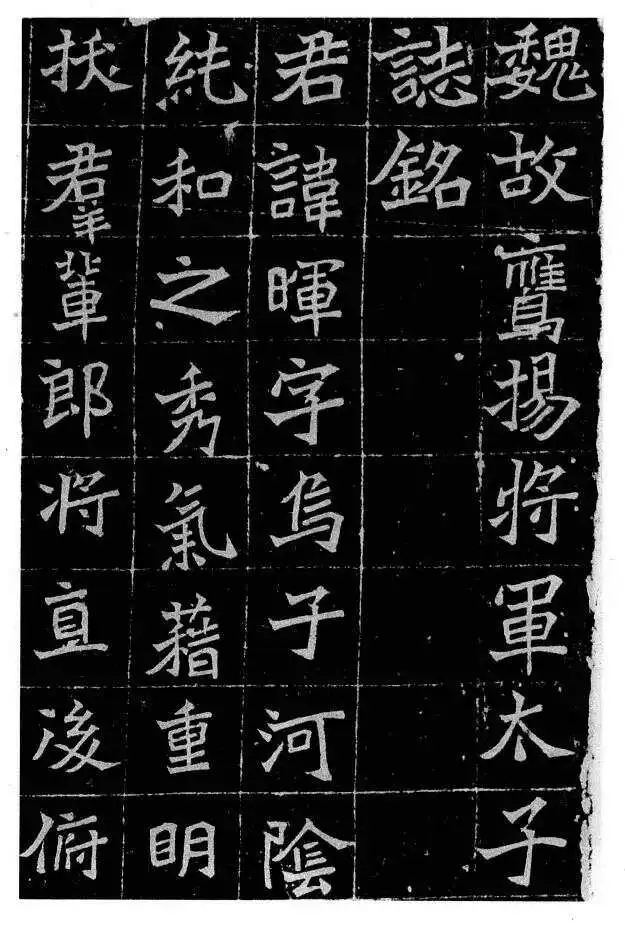 魏故鷹揚將軍太子
誌銘
君諱暉字烏子河陰
純和之秀氣藉重明
扶君羊輦郎將直後俯